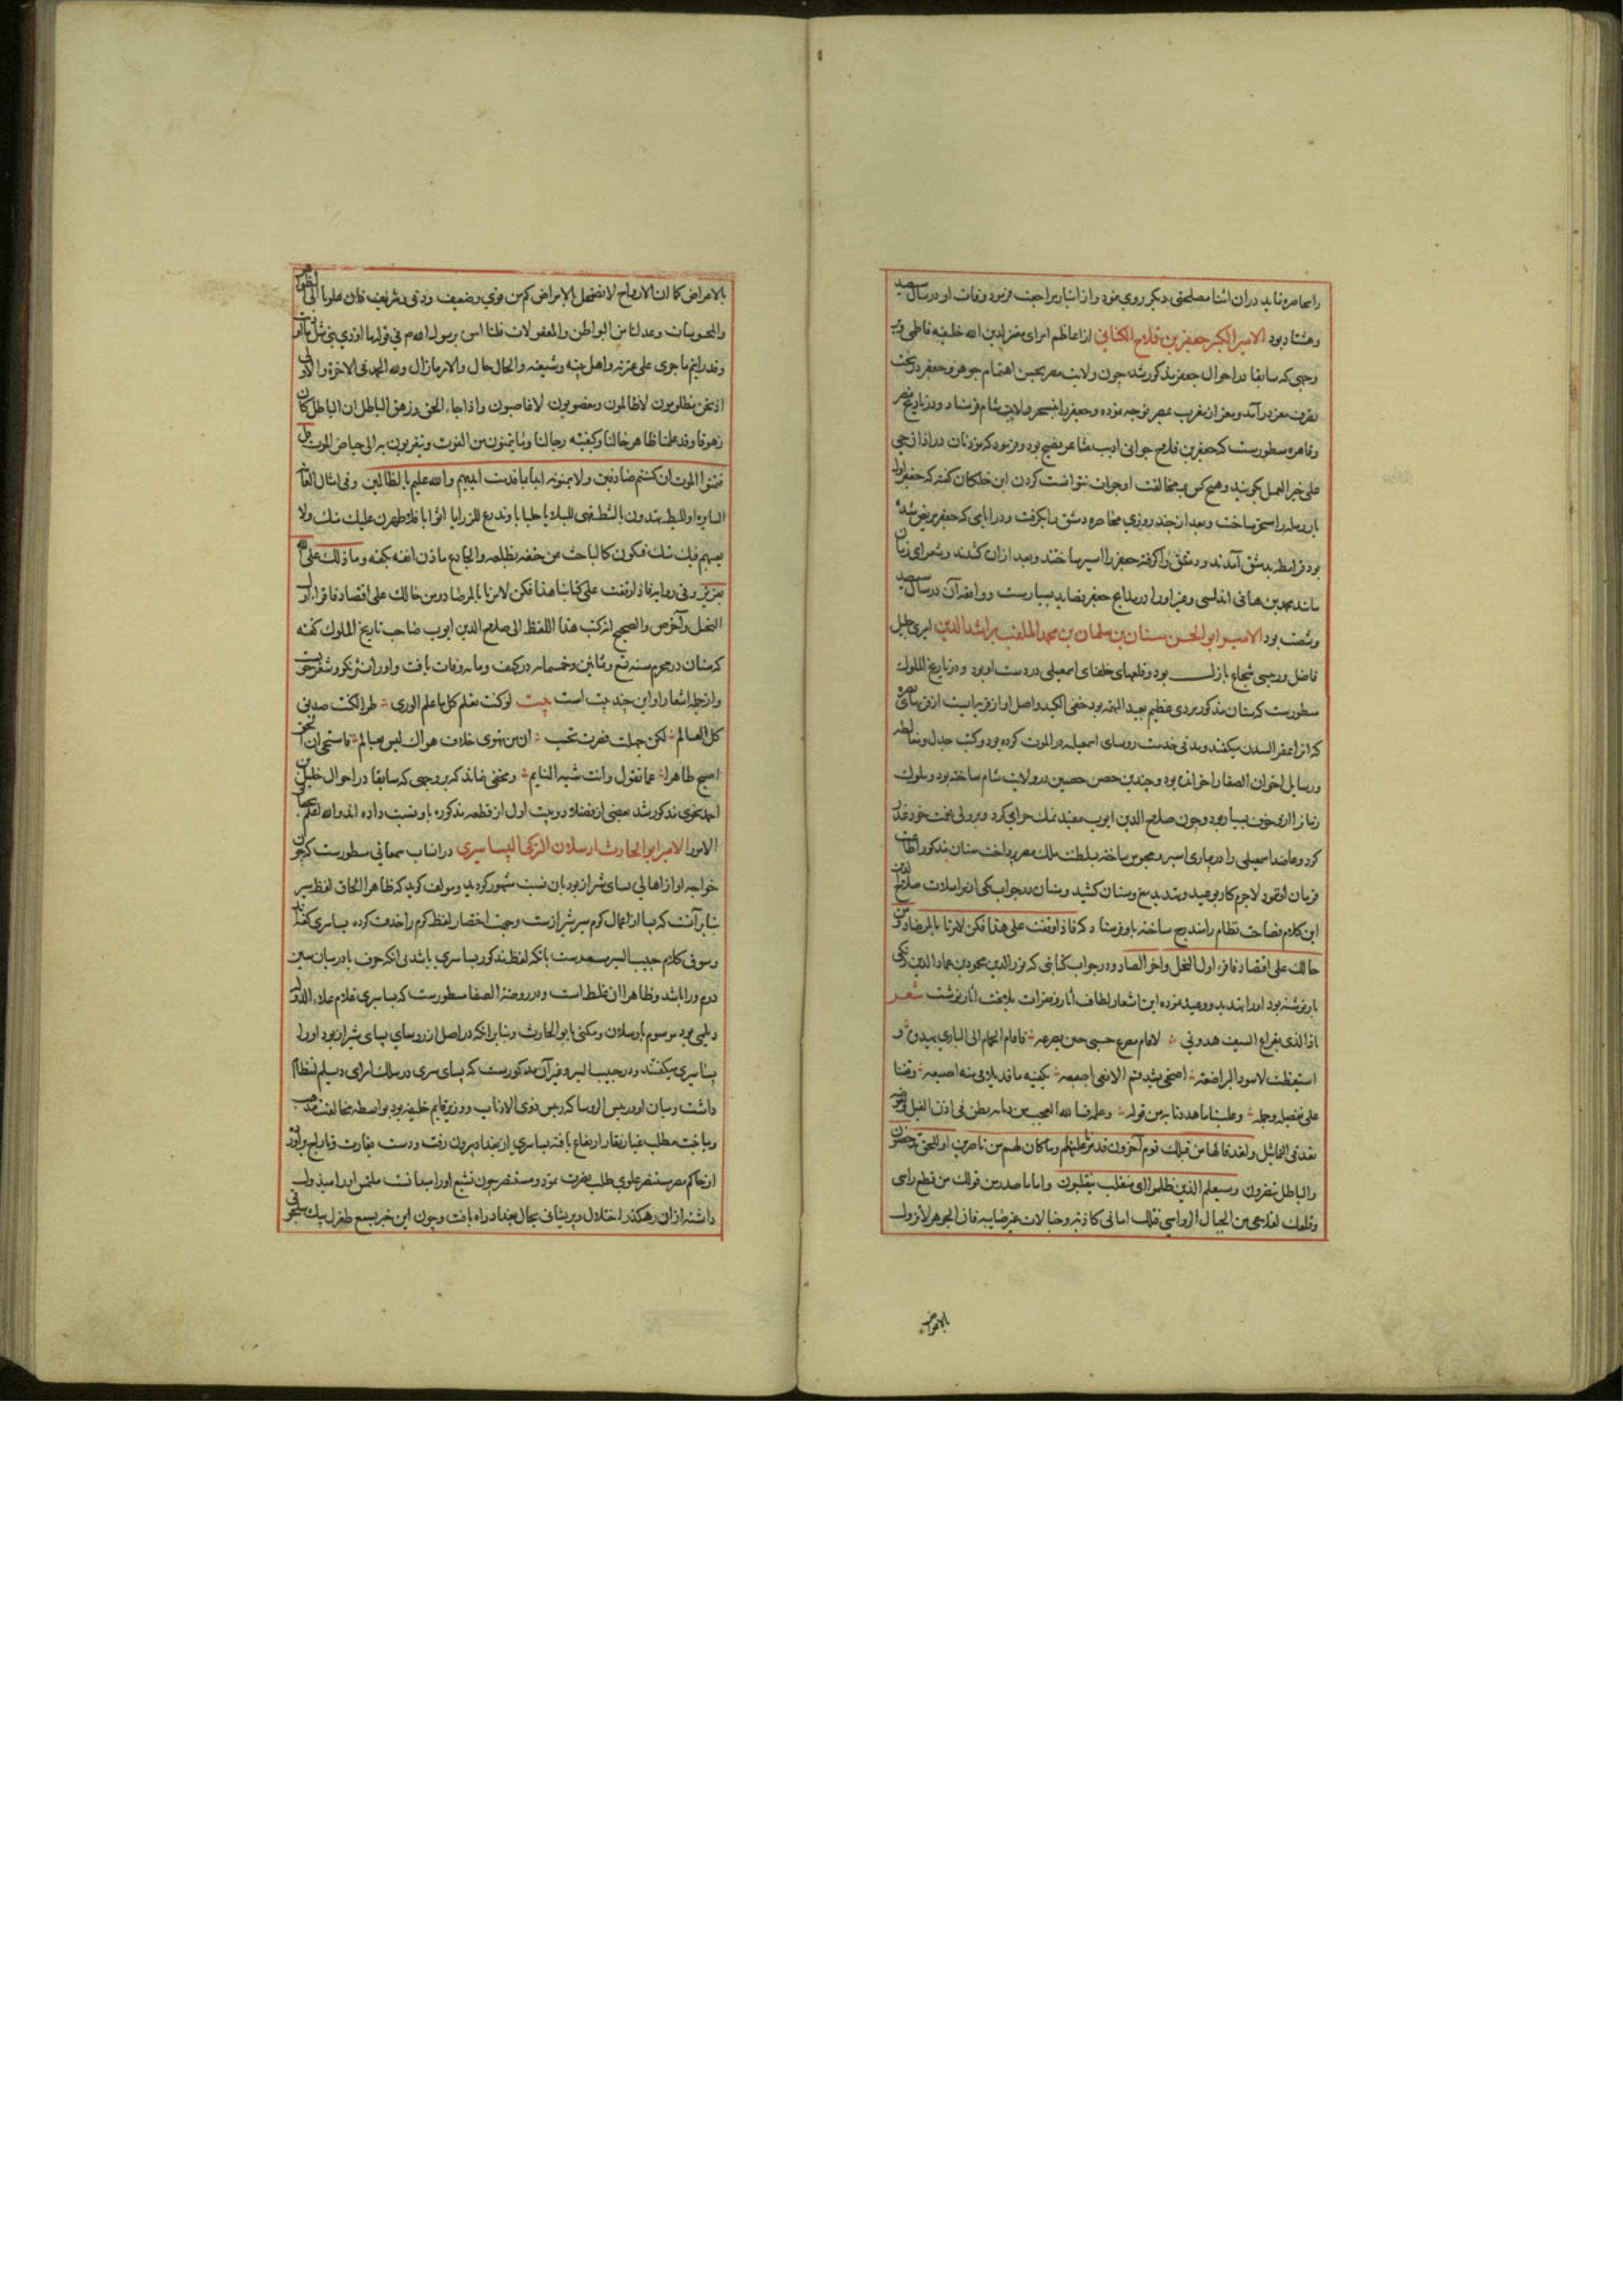 را محاصره نماید در آن اثنا مصلحتی دیگر روی نمود و از انبار مراجعت فرمود وفات او در سال سیصد
وهشتاد بود الامیر الکبیر جعفر بن فلاح الکتامی از اعاظم امرای معز لدین الله خلیفه فاطمی و بر
وجهی که سابقا در احوال جعفر مذکور شد چون ولایت مصر بحسن اهتمام جوهر و جعفر در تحت
تصرف معز در آمد و معز از مغرب بمصر توجه نموده و جعفر را بتسخیر ولایت شام فرستاد و در تاریخ مصر
وقاهره مسطورست که جعفر بن فلاح جوانی ادیب شاعر فصیح بود و فرمود که مؤذنان در اذان حی
علی خیر العمل گویند و هیچ کس بمخالفت او جرات نتوانست کردن ابن خلکان گفته که جعفر اول
بار رمله را مسخر ساخت و بعد از چند روزی محاصره دمشق را بگرفت و در ایامی که جعفر مریض شده
بود قرامطه بدمشق آمدند و دمشق را گرفته جعفر را اسیر ساختند و بعد از آن کشتند و شعرای زمان
مانند محمد بن هانی اندلسی و غیر او را در مدایح جعفر قصاید بسیارست و واقعه آن در سال سیصد
وشصت بود الامیر ابو الحسن سنان بن سلمان بن محمد الملقب براشد الدین امیری جلیل
فاضل و رییسی شجاع باذل بود و قلعهای خلفای اسمعیلی در دست او بود و در تاریخ الملوک
مسطورست که سنان مذکور مردی عظیم بعید الهمة بود خفی الکید و اصل او از قریه ایست از قرای بصره
که آنرا عقر السدن میگفتند و مدتی خدمت روسای اسمعیلیه در الموت کرده بود و کتب جدل و مغالطه
ورسایل اخوان الصفا را خوانده بود و چندین حصن حصین در ولایت شام ساخته بود و ملوک
زمان را از وی خوف بسیار بود و چون صلاح الدین ایوب مفید نمک حرامی کرد و بر ولی نعمت خود غدر
کرد و عاضد اسمعیلی را در بیماری اسیر و محبوس ساخته بسلطنت ملک مصر پرداخت سنان مذکور اطاعت
فرمان او ننمود لاجرم کار بوعید و تهدید سیخ و سنان کشید و سنان در جواب یکی از مراسلات صلاح الدین
این کلام فصاحت نظام را مندرج ساخته باو فرستاد که فاذا وقفت علی هذا فکن لامرنا بالمرصاد و من
حالک علی اقتصاد فاقرا اول النحل و آخر الصاد و در جواب کتابی که نور الدین محمود بن عماد الدین زنکی
باو نوشته بود او را تهدید و وعید نموده این اشعار لطافت آثار و فقرات بلاغت آثار نوشت شعر
یا ذا الذی بقراع السیف هددنی لا قام مصرع جنبی حین تصرعه قام الحمام الی البازی یهدده و
استیقظت لاسود البر اضبعه اضحی یسد فم الافعی باصبعه یکفیه ما قد تلاقی منه اصبعه وقفنا
علی تفصیله و جمله وعلمنا ما هددنا به من قوله و عمله فیا لله العجب من ذبابة تطن فی اذن الفیل و بعوضة
تعد فی التماثیل ولقد قالها من قبلک قوم آخرون فدمرنا علیهم وما کان لهم من ناصرین او للحق تدحضون
والباطل تنصرون وسیعلم الذین ظلموا ای منقلب ینقلبون واما ما صدر من قولک من قطع راسی
وقلعک لقلاعی من الجبال الرواسی فتلک امانی کاذبة و خیالات غیر صایبه فان الجوهر لا تزول
بالاعراض
بالاعراض کما ان الارواح لا تضمحل بالامراض کم من قوی و ضعیف ودنی وشریف فان عدنا الی الظواهر
والمحسوسات وعدلنا من البواطن والمعقولات فلنا اسوة برسول الله صم فی قوله ما اوذی نبی مثل ما اوذیت
وقد رایتم ما جری علی عترته واهل بیته وشیعته والحال ما حال والامر ما زال ولله الحمد فی الاخرة والاولی
اذ نحن مظلومون لا ظالمون ومغصوبون لا غاصبون واذا جاء الحق وزهق الباطل ان الباطل کان
زهوقا وقد علمنا ظاهر حالنا وکیفیة رجالنا وما یتمنون من الفوت ویتقربون به الی حیاض الموت قل
فتمنوا الموت ان کنتم صادقین ولا یتمنونه ابدا بما قدمت ایدیهم والله علیم بالظالمین وفی امثال العامة
السایرة او للبط تهددون بالشط فهیئ للبلایا جلبابا وتدرع للرزایا اثوابا فلاظهرن علیک منک ولا
بعهم فیک عنک فتکون کالباحث عن حتفه بظلفه والجادع مارن انفه بکفه وما ذلک علی الله
بعزیز وفی روایة فاذا وقفت علی کتابنا هذا فکن لامرنا بالمرصاد ومن حالک علی اقتصاد فاقرا اول
النحل وآخر ص والصحیح انه کتب هذا اللفظ الی صلاح الدین ایوب صاحب تاریخ الملوک گفته
که سنان در محرم سنه تسع وثمانین وخمسمائه در کهف وفات یافت و او را نثر نیکو و شعر خوبست
و از جمله اشعار او این چند بیت است بیت لو کنت تعلم کل ما علم الوری طرا لکنت صدیق
کل العالم لکن جهلت فصرت تحسب ان من یهوی خلاف هواک لیس بعالم فاستحی ان الحق
اصبح ظاهرا عما تقول وانت شبه النایم و مخفی نماند که بر وجهی که سابقا در احوال خلیل بن
احمد نحوی مذکور شد بعضی از فضلا دو بیت اول از قطعه مذکوره باو نسبت داده اند والله اعلم بحقایق
الامور الامیر ابو الحارث ارسلان الترکی البساسیری در انساب سمعانی مسطورست که چون
خواجه او از اهالی بسای شیراز بود بان نسبت مشهور گردید و مولف گوید که ظاهرا الحاق لفظ سیر
بنا بر آنست که بسا از اعمال گرم سیر شیراز ست و جهت اختصار لفظ گرم را حذف کرده بساسیری گفته‌اند
وسوق کلام حبیب السیر مشعرست بانکه لفظ مذکور بساسری باشد بی آنکه حرف یا در میان سین
دوم و را باشد و ظاهرا آن غلط است و در روضة الصفا مسطورست که بساسیری غلام علاء الدوله
دیلمی بود موسوم بارسلان و مکنی بابو الحارث و بنا بر آنکه در اصل از روسای بسای شیراز بود او را
بساسیری میگفتند و در حبیب السیر و غیر آن مذکورست که بساسری در سلک امرای دیلم انتظام
داشت و میان او و رییس الروسا که رییس ذوی الاذناب و وزیر قایم خلیفه بود بواسطه مخالفت مذهب
ومباینت مطلب غبار نقار ارتفاع یافته بساسیری از بغداد بیرون رفت و دست بغارت و تاراج بر آورد
از حاکم مصر مستنصر علوی طلب نصرت نمود و مستنصر چون تشیع او را میدانست ملتمس او را مبذول
داشته از آن رهگذر اختلال و پریشانی بحال بغداد راه یافت و چون این خبر بسمع طغرل بیک سلجوقی